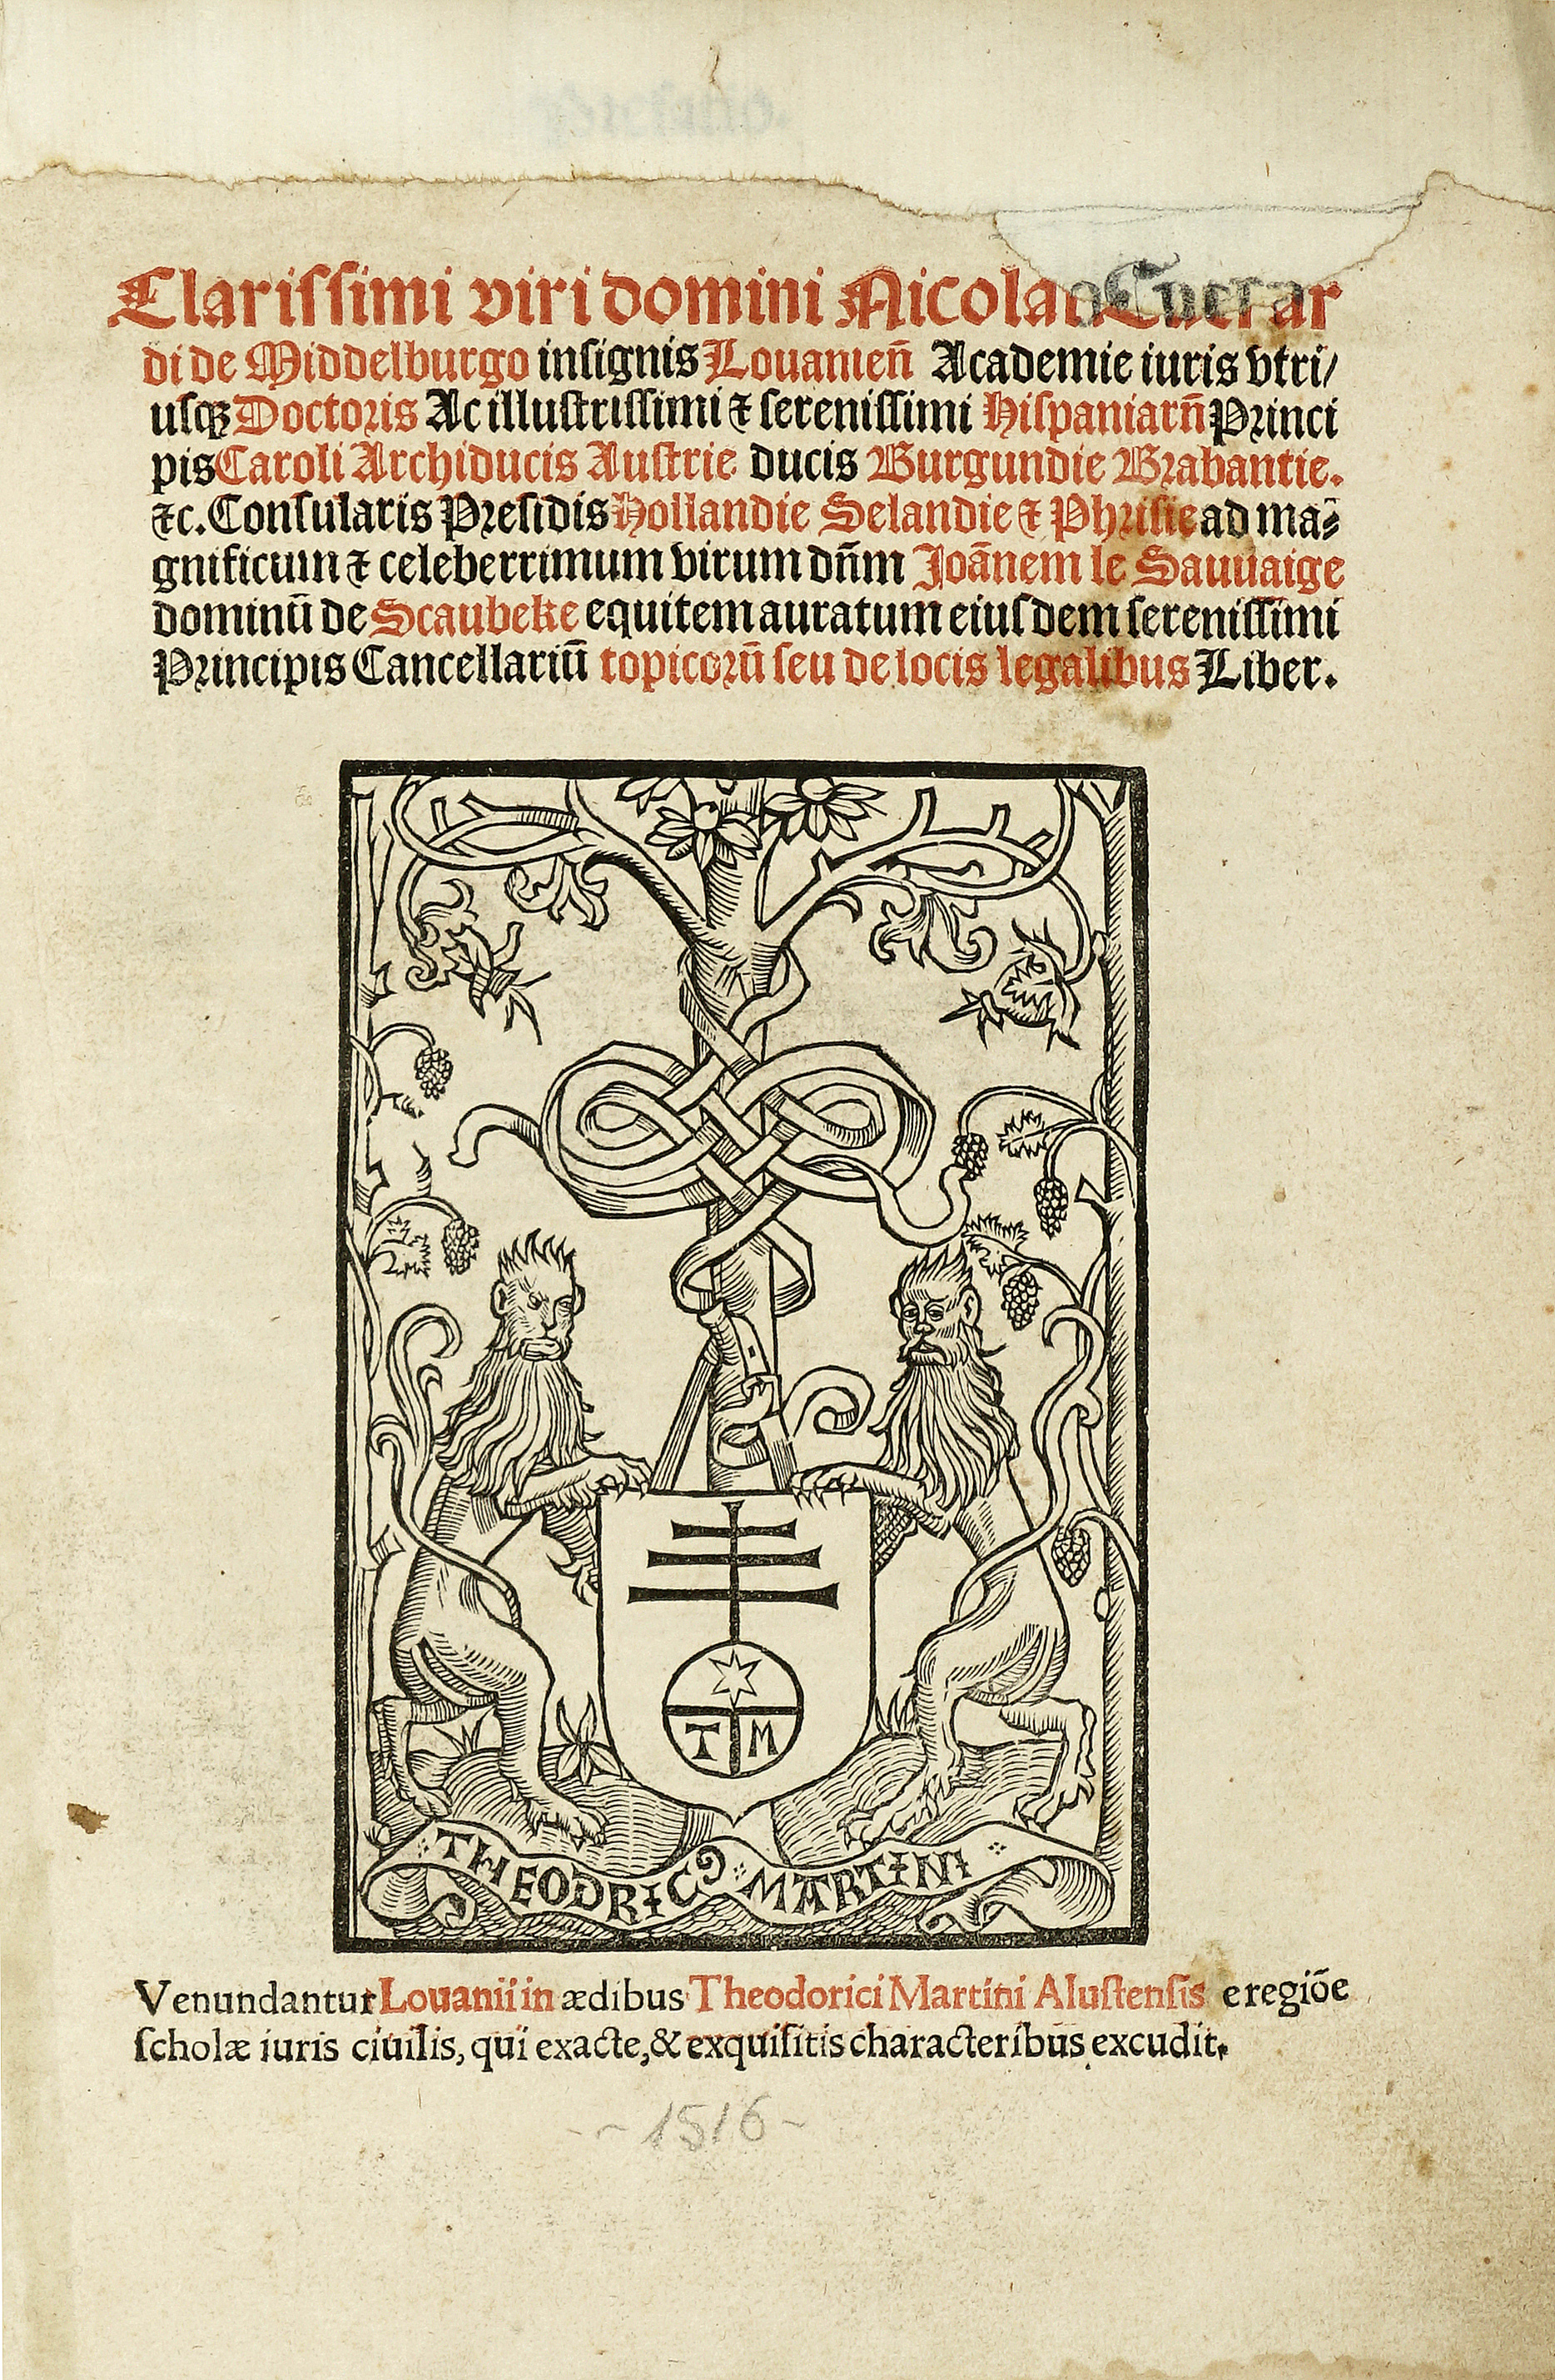 Clariſſimi viri domini Nicolao Euerar
di de Middelburgo inſignis Louanieñ Academie iuris vtri/
uſqꝫ Doctoris Ac illuſtriſſimi ⁊ ſereniſſimi Hiſpaniarũ Princi
pis Caroli Archiducis Auſtrie ducis Burgundie Brabantie.
⁊c. Conſularis Preſidis Hollandie Selandie ⁊ Phriſie ad ma⸗
gnificum ⁊ celeberrimum virum dñm Joãnem le Sauuaige
dominũ de Scaubeke equitem auratum eiuſdem ſereniſſimi
Principis Cancellariũ topicorũ ſeu de locis legalibus Liber.
T M
THEODRICꝰ MARTINI
Venundantur Louanii in ædibus Theodorici Martini Aluſtenſis e regiõe
ſcholæ iuris ciuilis, qui exacte, & exquiſitis characteribus excudit.
~ 1516 ~